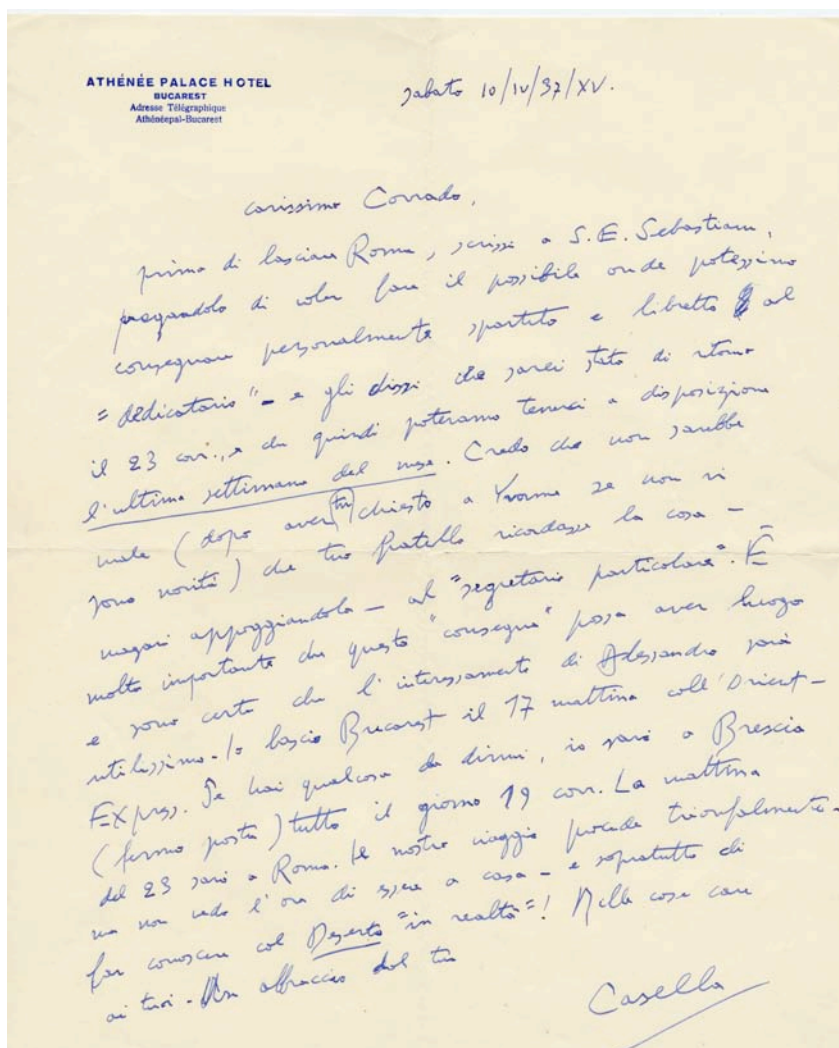 ATHÉNÉE PALACE HOTEL
BUCAREST
Adresse Télégraphique
Athénéepal-Bucarest
sabato 10/IV/37/XV.
carissimo Corrado,
prima di lasciare Roma, scrissi a S.E. Sebastiani,
pregandolo di voler fare il possibile onde potessimo
consegnare personalmente spartito e libretto al
"dedicatario" – e gli dissi che sarei stato di ritorno
il 23 corr., e che quindi potevamo tenerci a disposizione
l'ultima settimana del mese. Credo che non sarebbe
male (dopo aver tu chiesto a Yvonne se non vi
sono novità) che tuo fratello ricordasse la cosa –
magari appoggiandola – al "segretario particolare". È
molto importante che questa "consegna" possa aver luogo
e sono certo che l'interessamento di Alessandro sarà
utilissimo. Io lascio Bucarest il 17 mattina coll'Orient-
Express. Se hai qualcosa da dirmi, io sarò a Brescia
(fermo posta) tutto il giorno 19 corr. La mattina
del 23 sarò a Roma. Il nostro viaggio procede trionfalmente –
ma non vedo l'ora di essere a casa – e sopratutto di
far conoscere col Deserto "in realtà"! Mille cose care
ai tuoi. Un abbraccio dal tuo
Casella